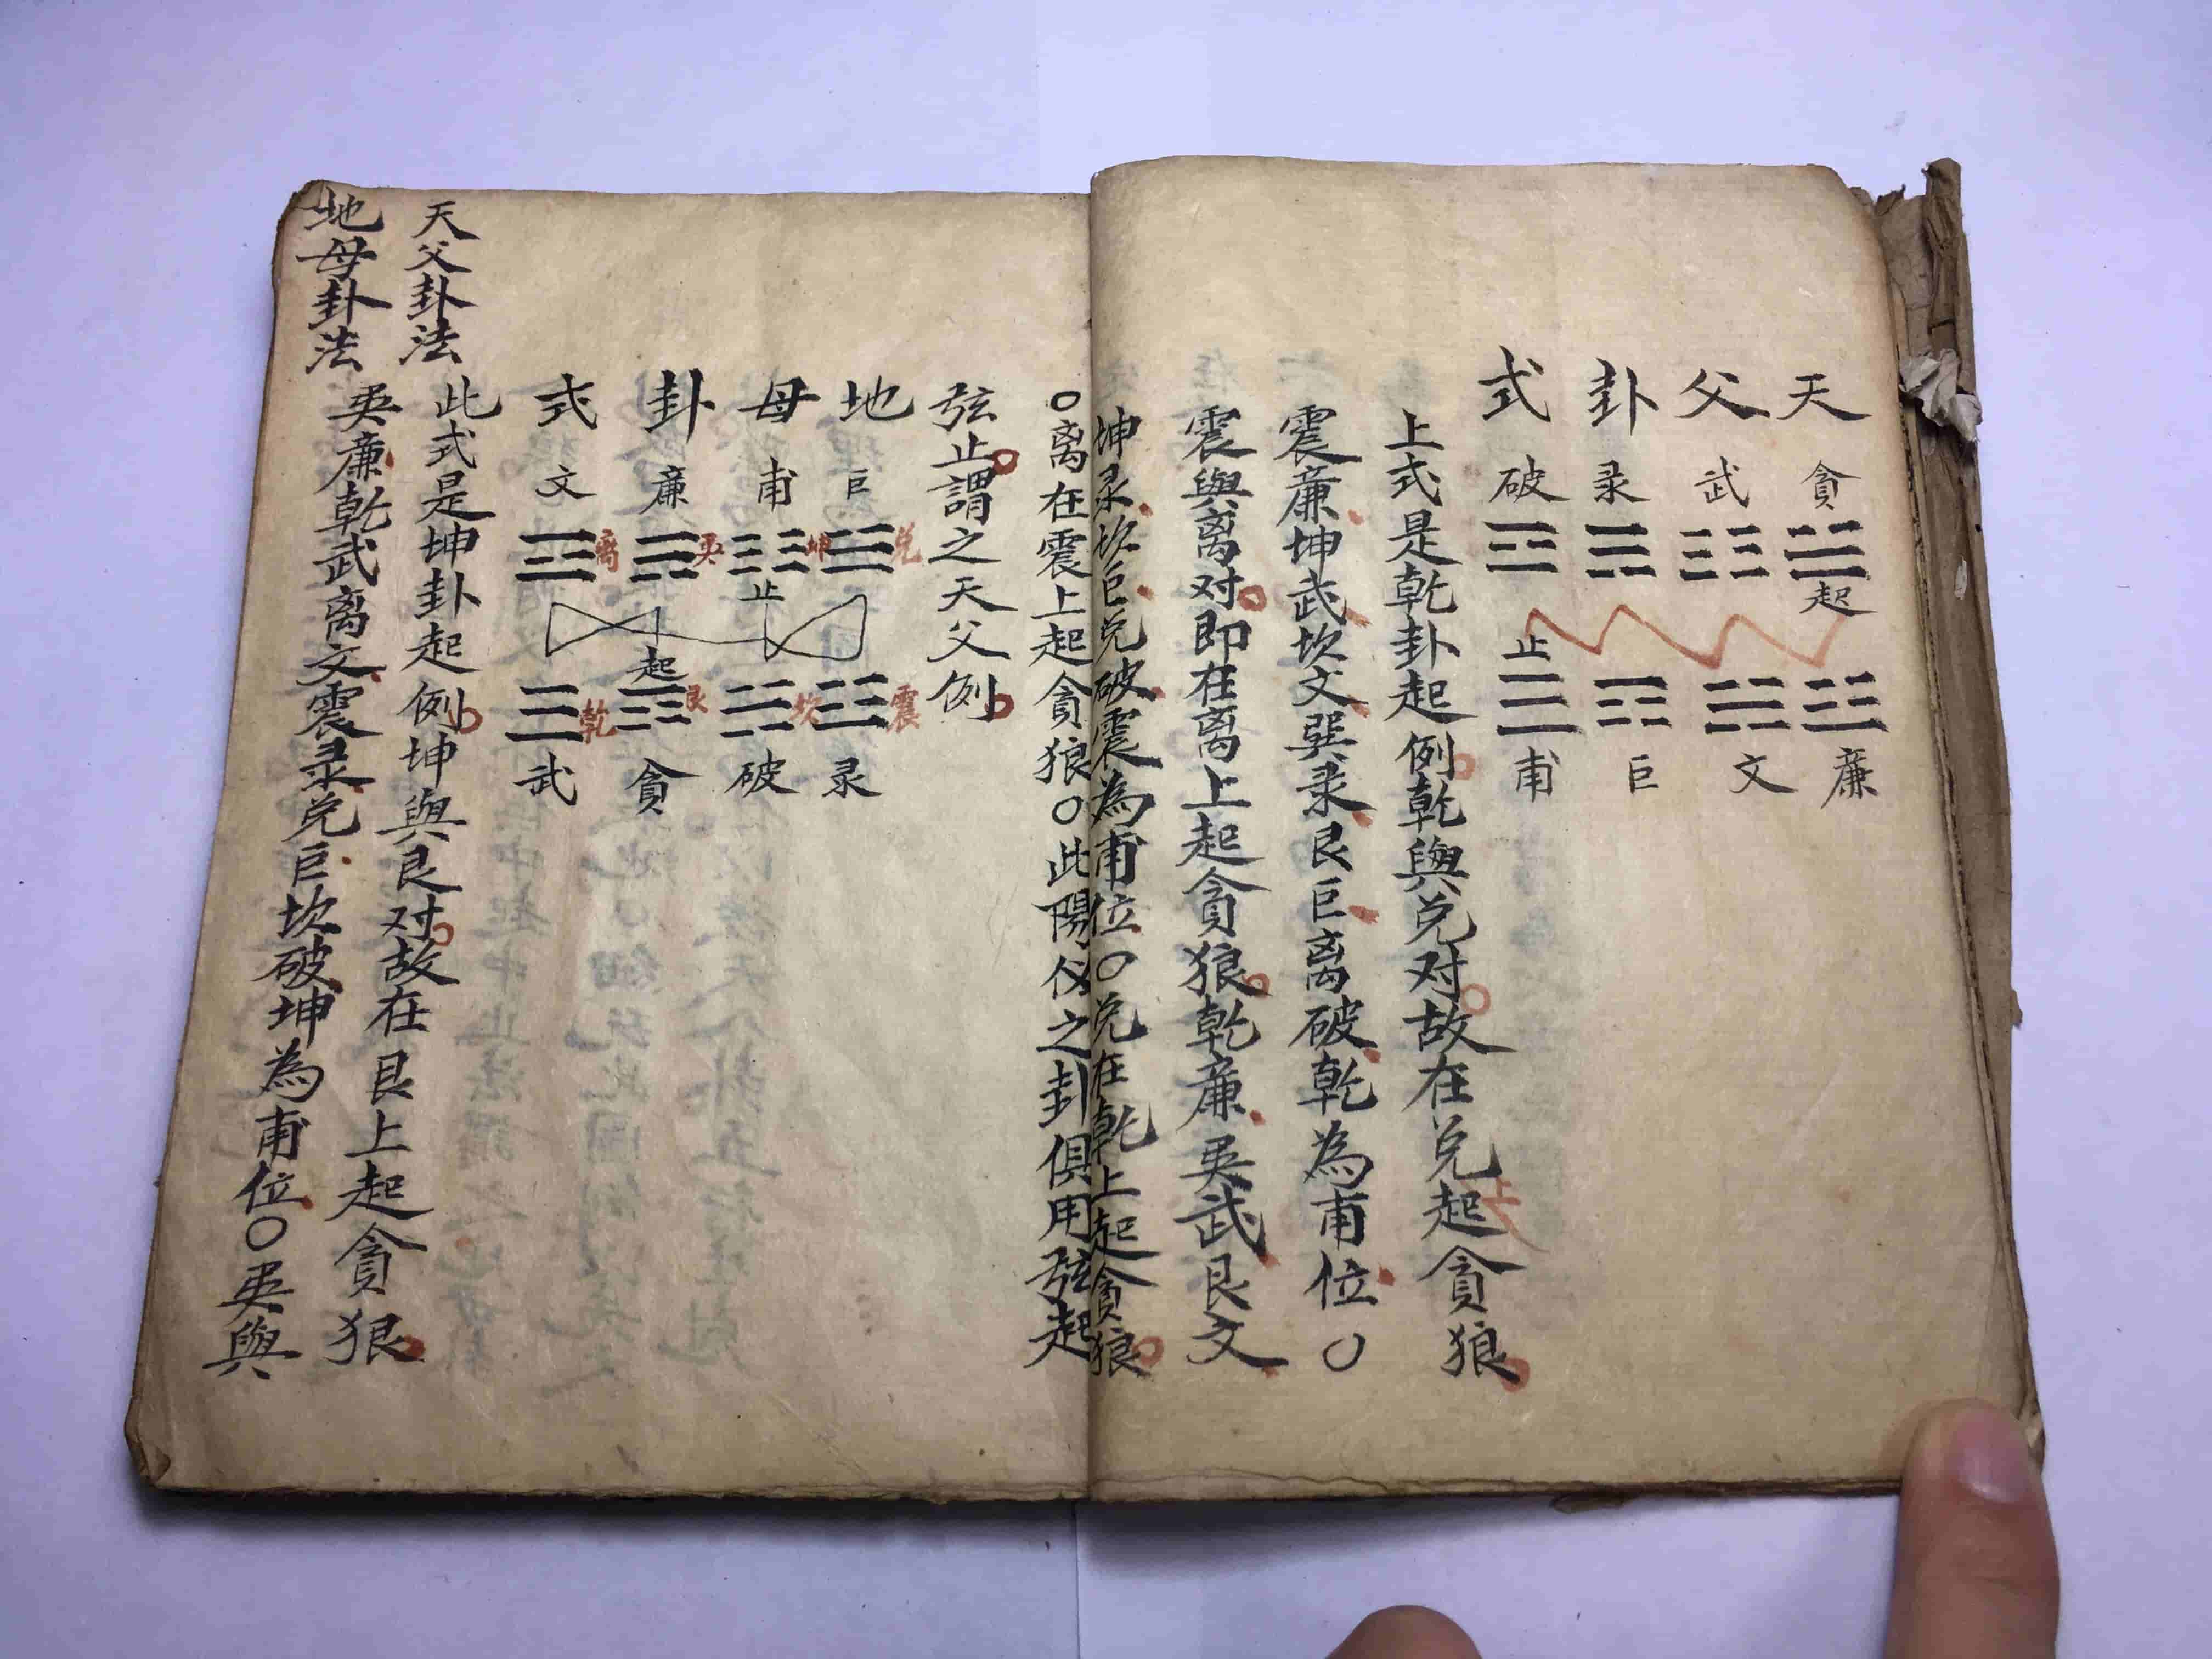 天父卦式
貪武录破
起
止
廉文巨甫
上式是乾卦起例乾與兑对故在兑上起貪狼
震廉坤武坎文巽录艮巨离破乾為甫位〇
震與离对即在离上起貪狼乾廉巽武艮文
坤录坎巨兑破震為甫位〇兑在乾上起貪狼
〇离在震上起貪狼〇此陽仪之卦俱用弦起
弦止謂之天父例
地母卦式
巨甫廉文
兑坤巽离
止
起
震坎艮乾
录破貪武
天父卦法
此式是坤卦起例坤與艮对故在艮上起貪狼
地母卦法
巽廉乾武离文震录兑巨坎破坤為甫位〇巽與